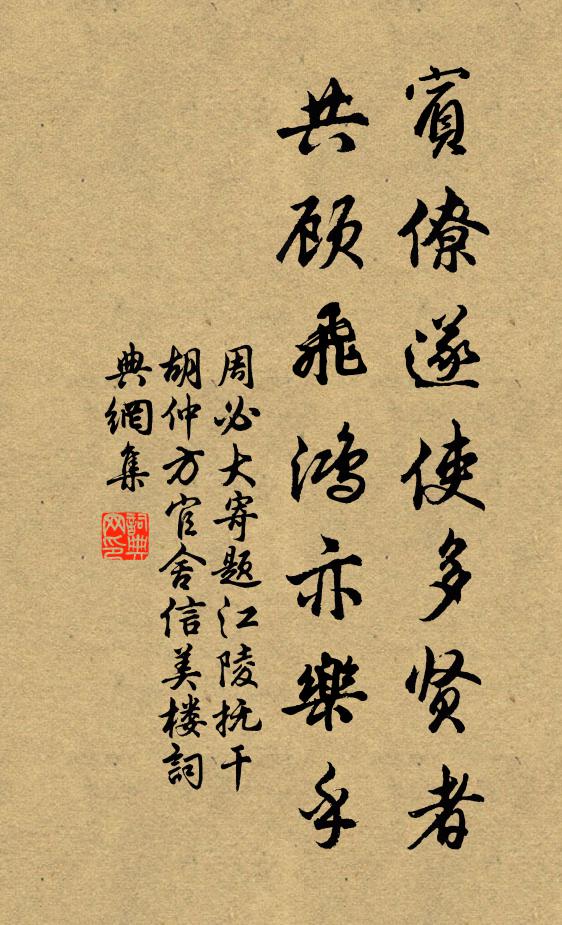 賓僚遂使多贤者
共顾飛鸿亦樂乎
周必大寄题江陵抚干
胡仲方官舍信美楼詞
典網集
詞典
网印